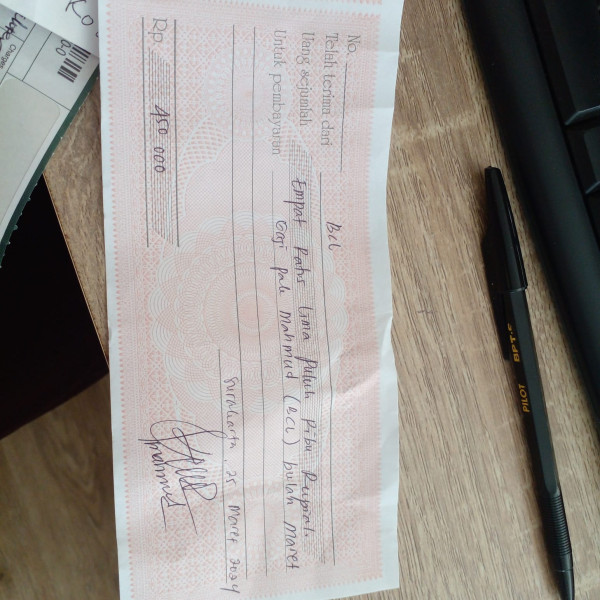 No.
Telah terima dari BCL
Uang sejumlah Empat Ratus Lima Puluh Ribu Rupiah
Untuk pembayaran Gaji pak Mahmud (BCL) bulan Maret
Surakarta, 25 Maret 2024
Rp. 450.000
Mahmud
PILOT BPT-F
Charges